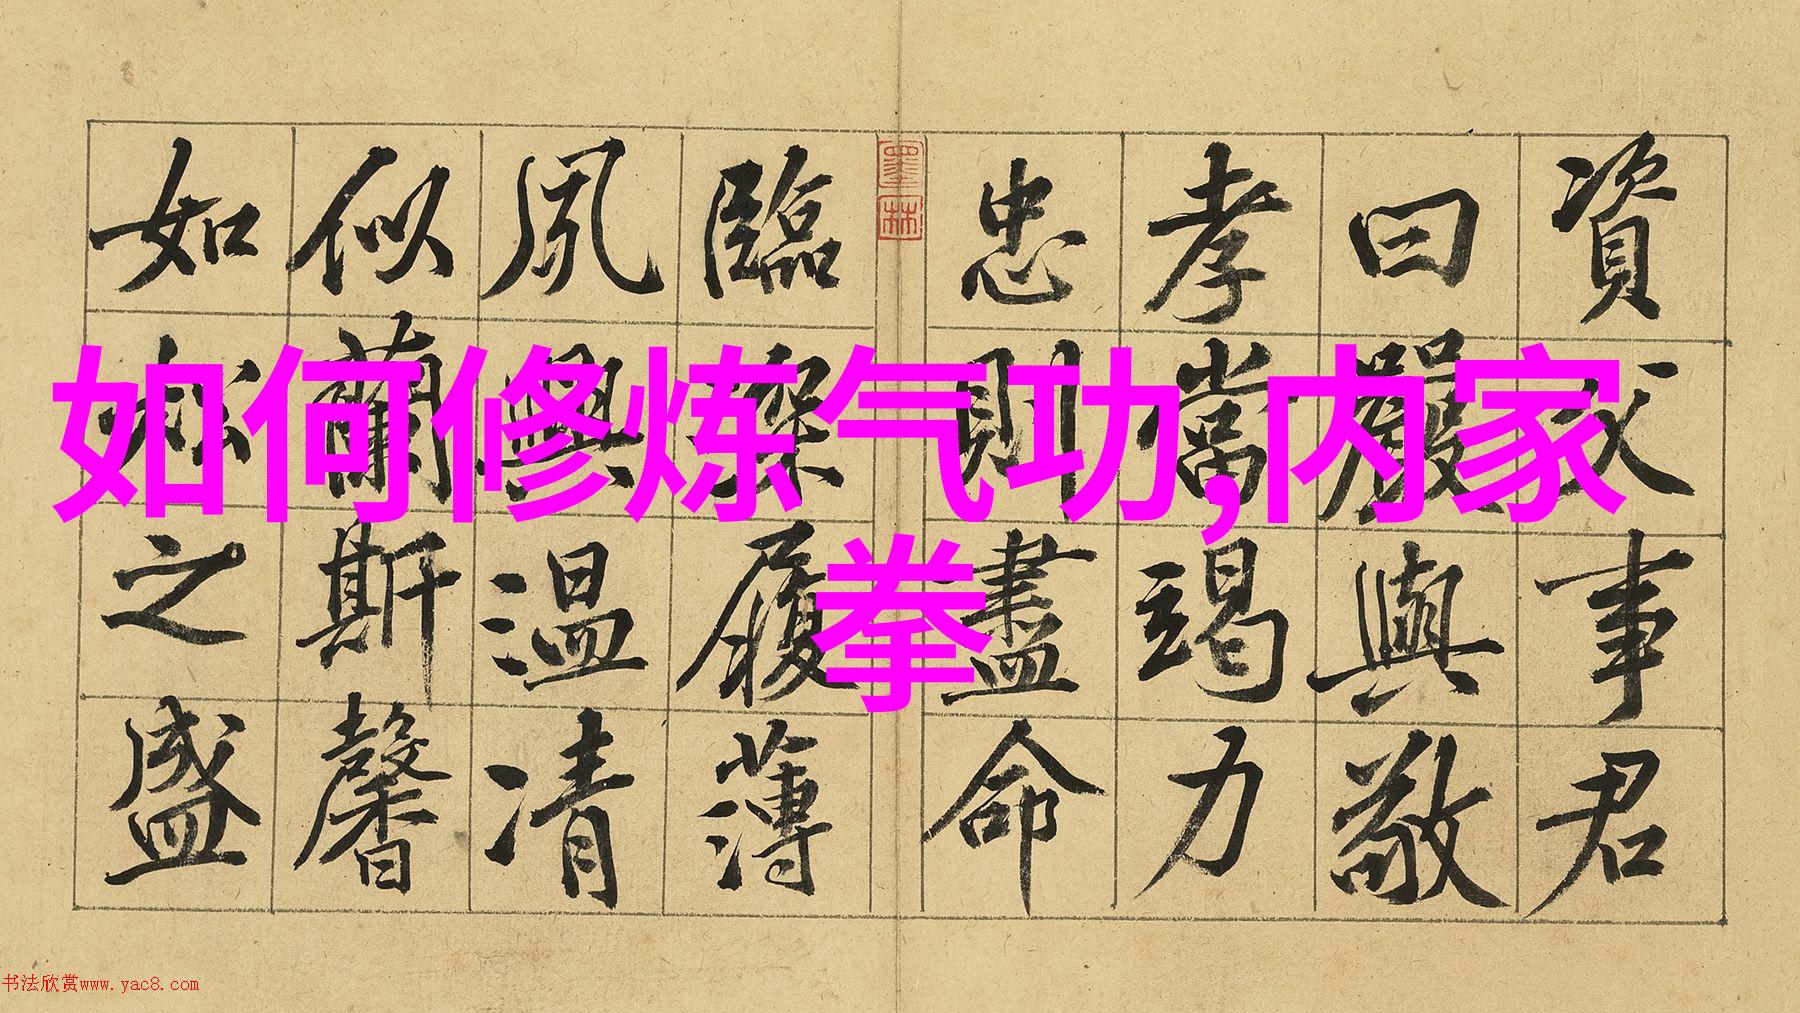 如何修炼气功,内家
拳
資父事君
曰嚴與敬
孝當竭力
忠則盡命
墨林
臨深履薄
夙興温凊
似蘭斯馨
如松之盛
书法欣赏www.yac8.com